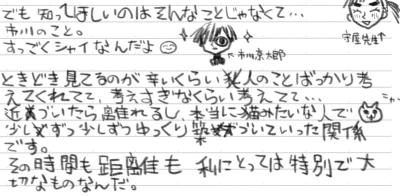 でも 知ってほしいのはそんなことじゃなくて…
守屋先生↑
市川のこと。
すっごくシャイなんだよ
↖市川京太郎
ときどき見てるのが辛いくらい 人のことばっかり考
えてくれてて、考えすぎなくらい考えてて…
ニャ
近づいたら離れるし、本当に猫みたいな人で
少しずつ少しずつゆっくり築づいていった関係
です。
その時間も距離も 私にとっては特別で大
切なものなんだ。